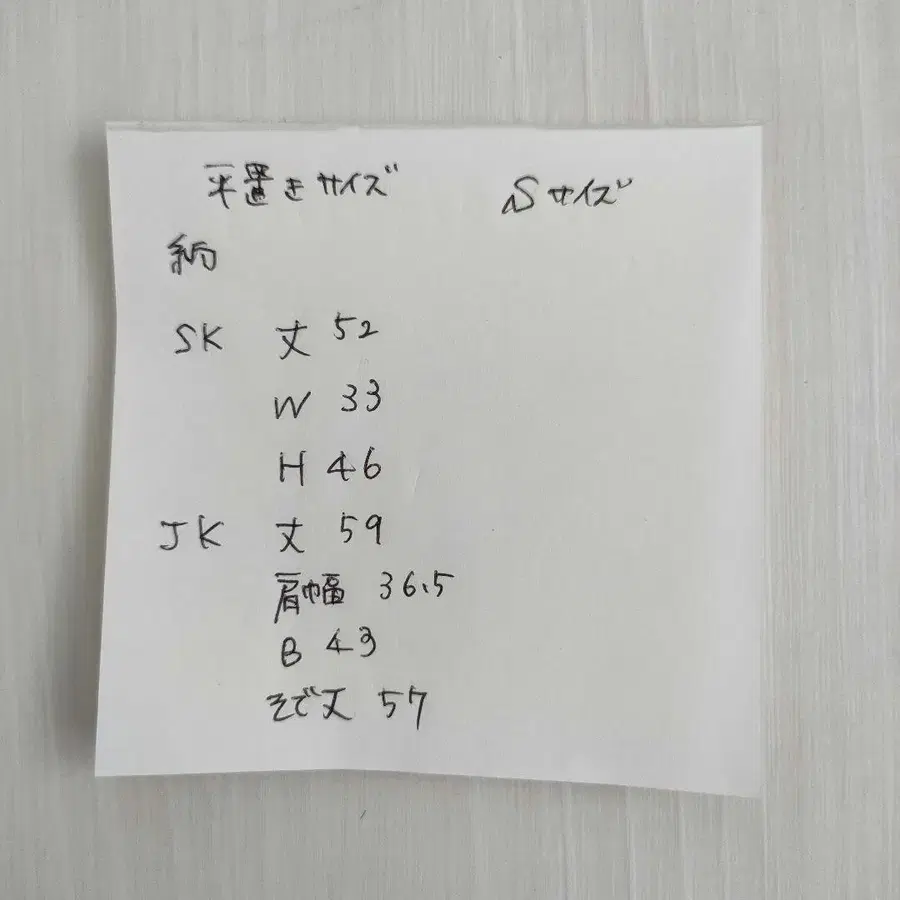 平置きサイズ Sサイズ
SK 丈 52
W 33
H 46
JK 丈 59
肩幅 36.5
B 43
そで丈 57